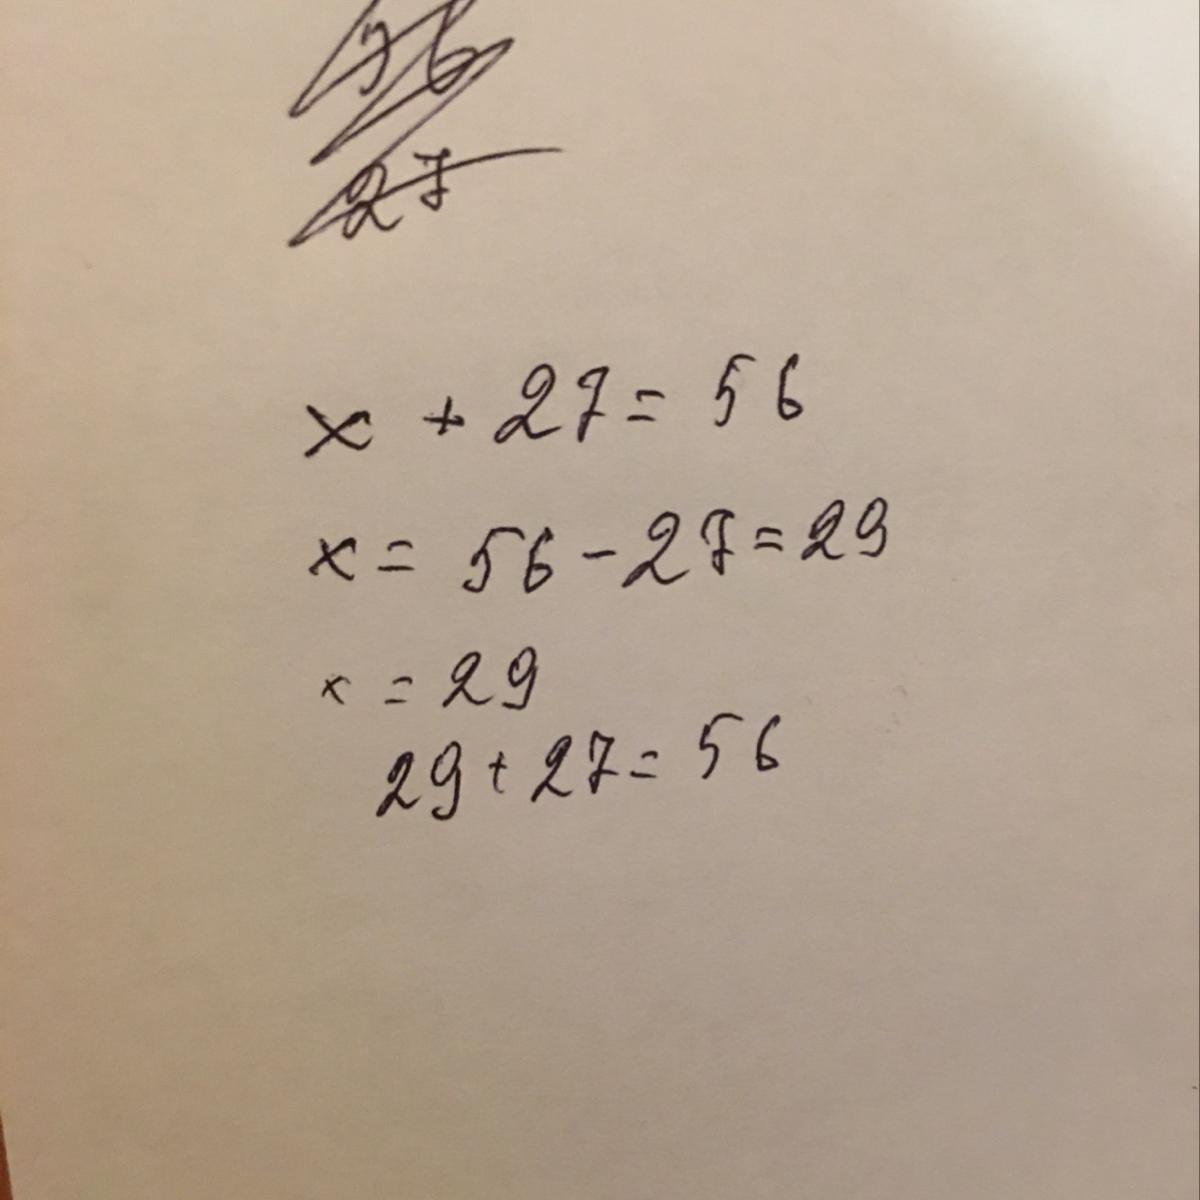 27
x + 27 = 56
x = 56 - 27 = 29
x = 29
29 + 27 = 56